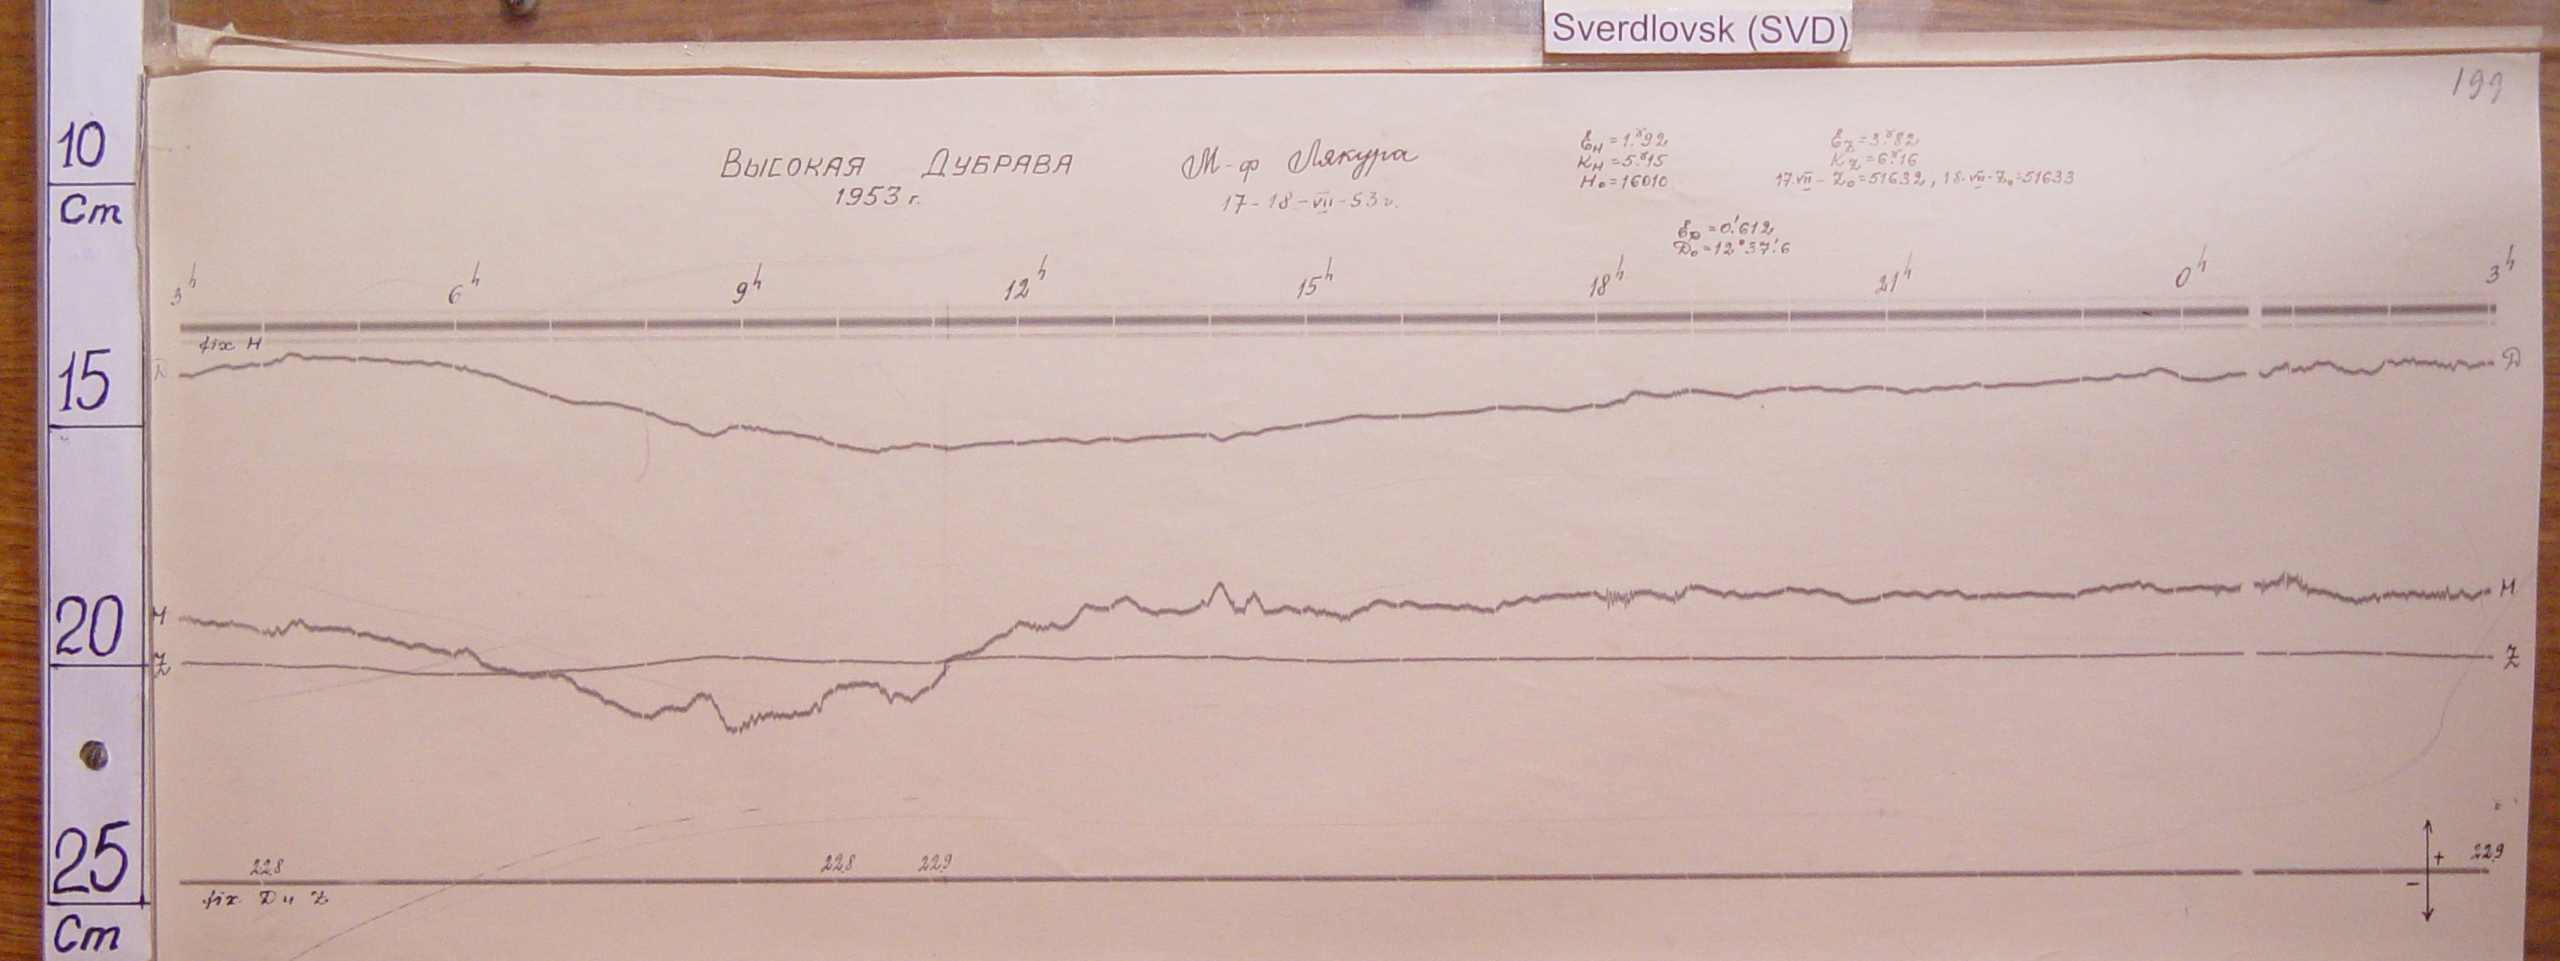 Sverdlovsk (SVD)
199
10
Cm
15
20
25
Cm
Высокая Дубрава
1953 г.
М-ф Лякура
17-18-VII-53г.
Ɛн = 1.ˠ92
Kн = 5.ˠ15
H₀ = 16010
Ɛz = 3.ˠ82
Kz = 6.ˠ16
17.VII - Z₀ = 51632, 18.VII - Z₀ = 51633
ƐD = 0.′612
D₀ = 12°37.′6
3ʰ 6ʰ 9ʰ 12ʰ 15ʰ 18ʰ 21ʰ 0ʰ 3ʰ
fix H
D D
H H
Z Z
22.8 22.8 22.9 22.9
fix D и Z
+
-